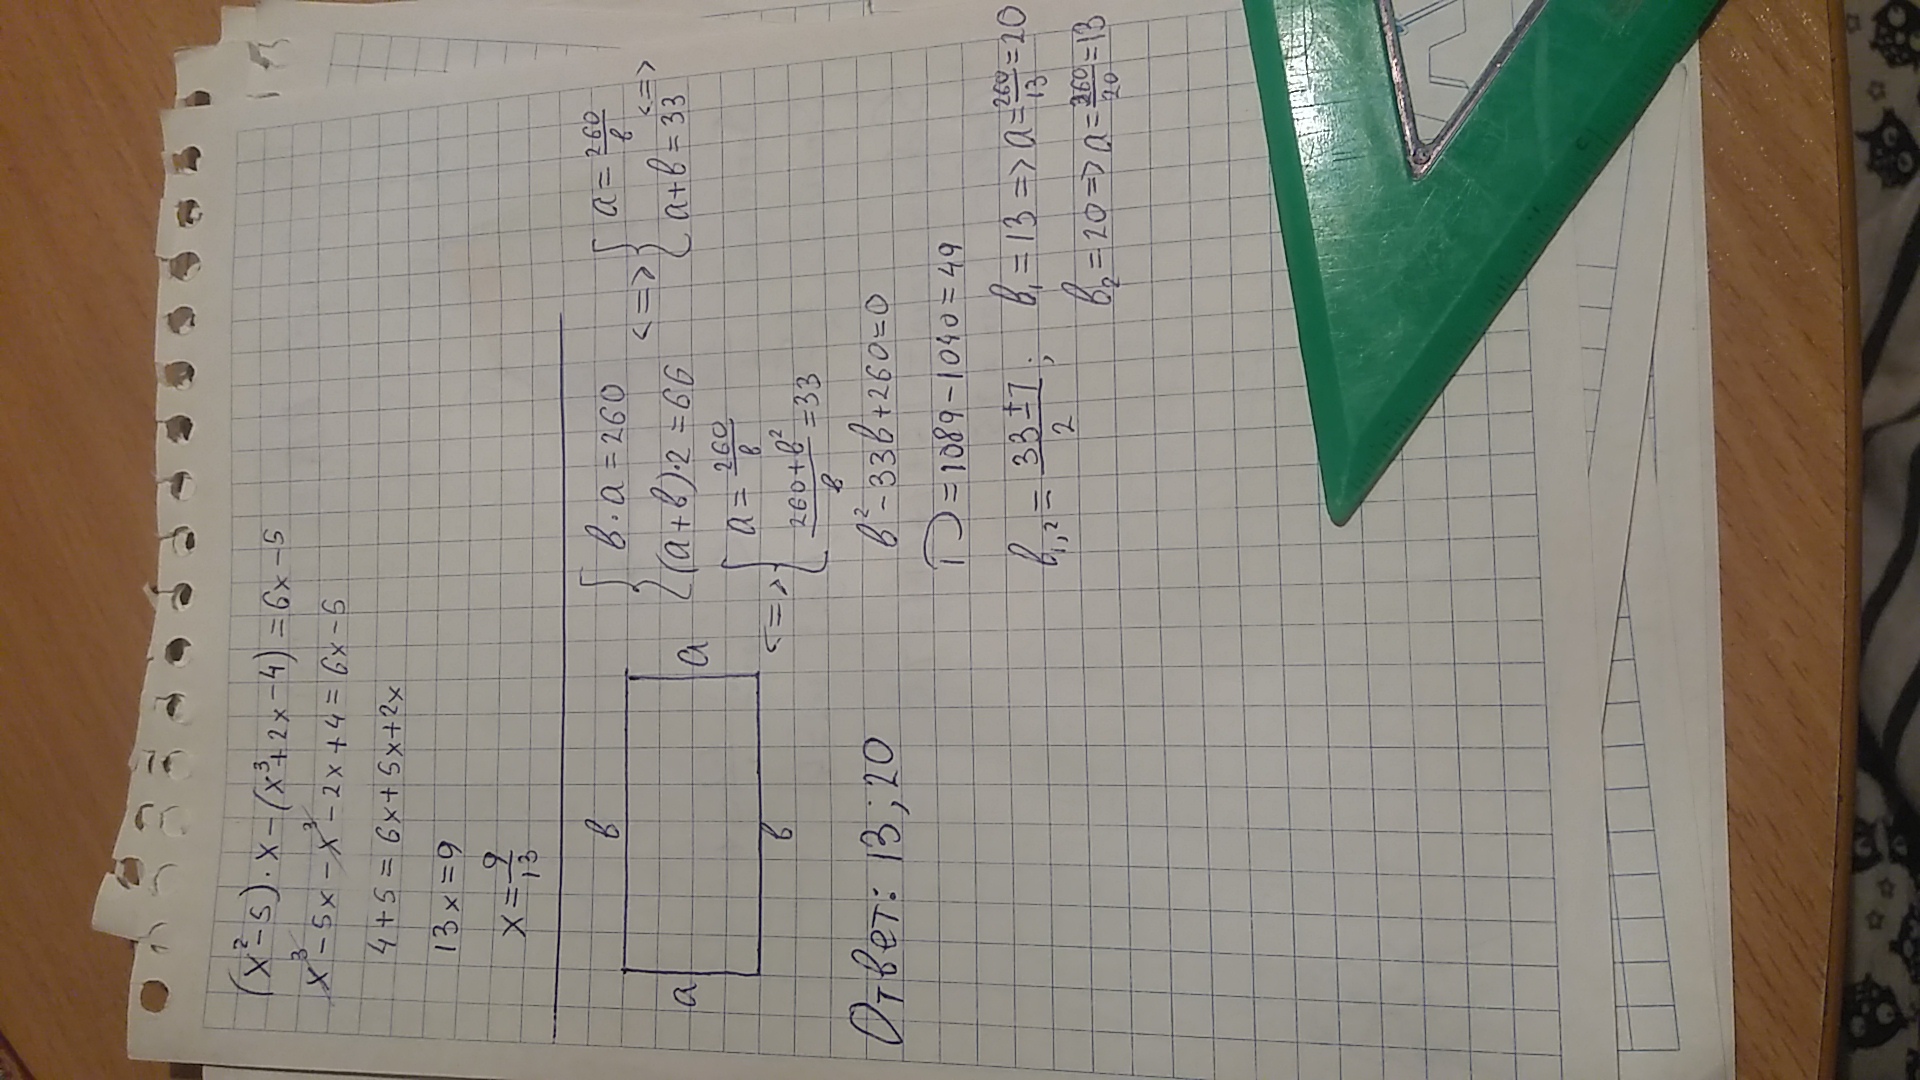 (x²-5)·x-(x³+2x-4)=6x-5
x³-5x-x³-2x+4=6x-5
4+5=6x+5x+2x
13x=9
x=9/13
в
a
a
в
{ в·a=260
{ (a+в)·2=66
<=> { a=260/в
{ a+в=33 <=>
<=> { a=260/в
{ (260+в²)/в=33
в²-33в+260=0
D=1089-1040=49
в₁,₂=(33±7)/2; в₁=13=>a=260/13=20
в₂=20=>a=260/20=13
Ответ: 13; 20